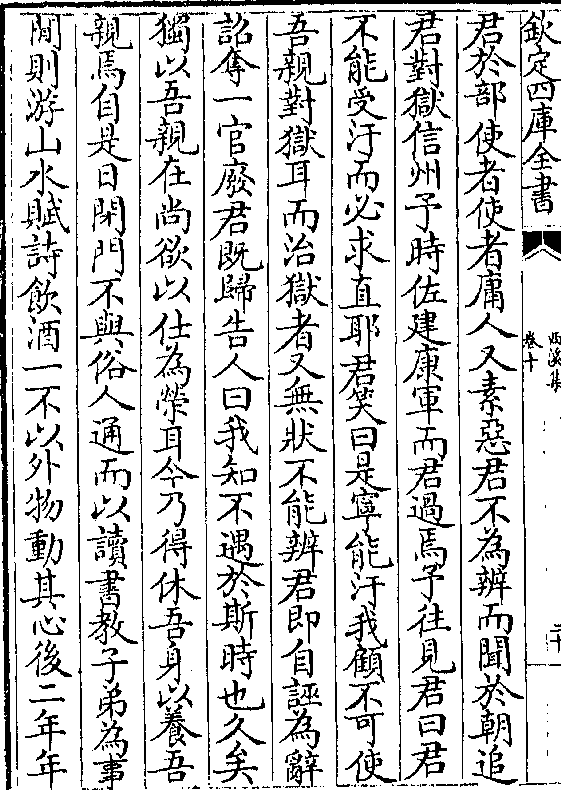 欽定四庫全書
西溪集
卷十
二十
君於部使者使者庸人又素惡君不為辨而聞於朝追
君對獄信州予時佐建康軍而君過焉予往見君曰君
不能受汙而必求直耶君笑曰是寧能汙我顧不可使
吾親對獄耳而治獄者又無狀不能辨君即自誣為辭
詔奪一官廢君既歸告人曰我知不遇於斯時也久矣
獨以吾親在尚欲以仕為榮耳今乃得休吾身以養吾
親焉自是日閉門不與俗人通而以讀書教子弟為事
閒則游山水賦詩飲酒一不以外物動其心後二年年